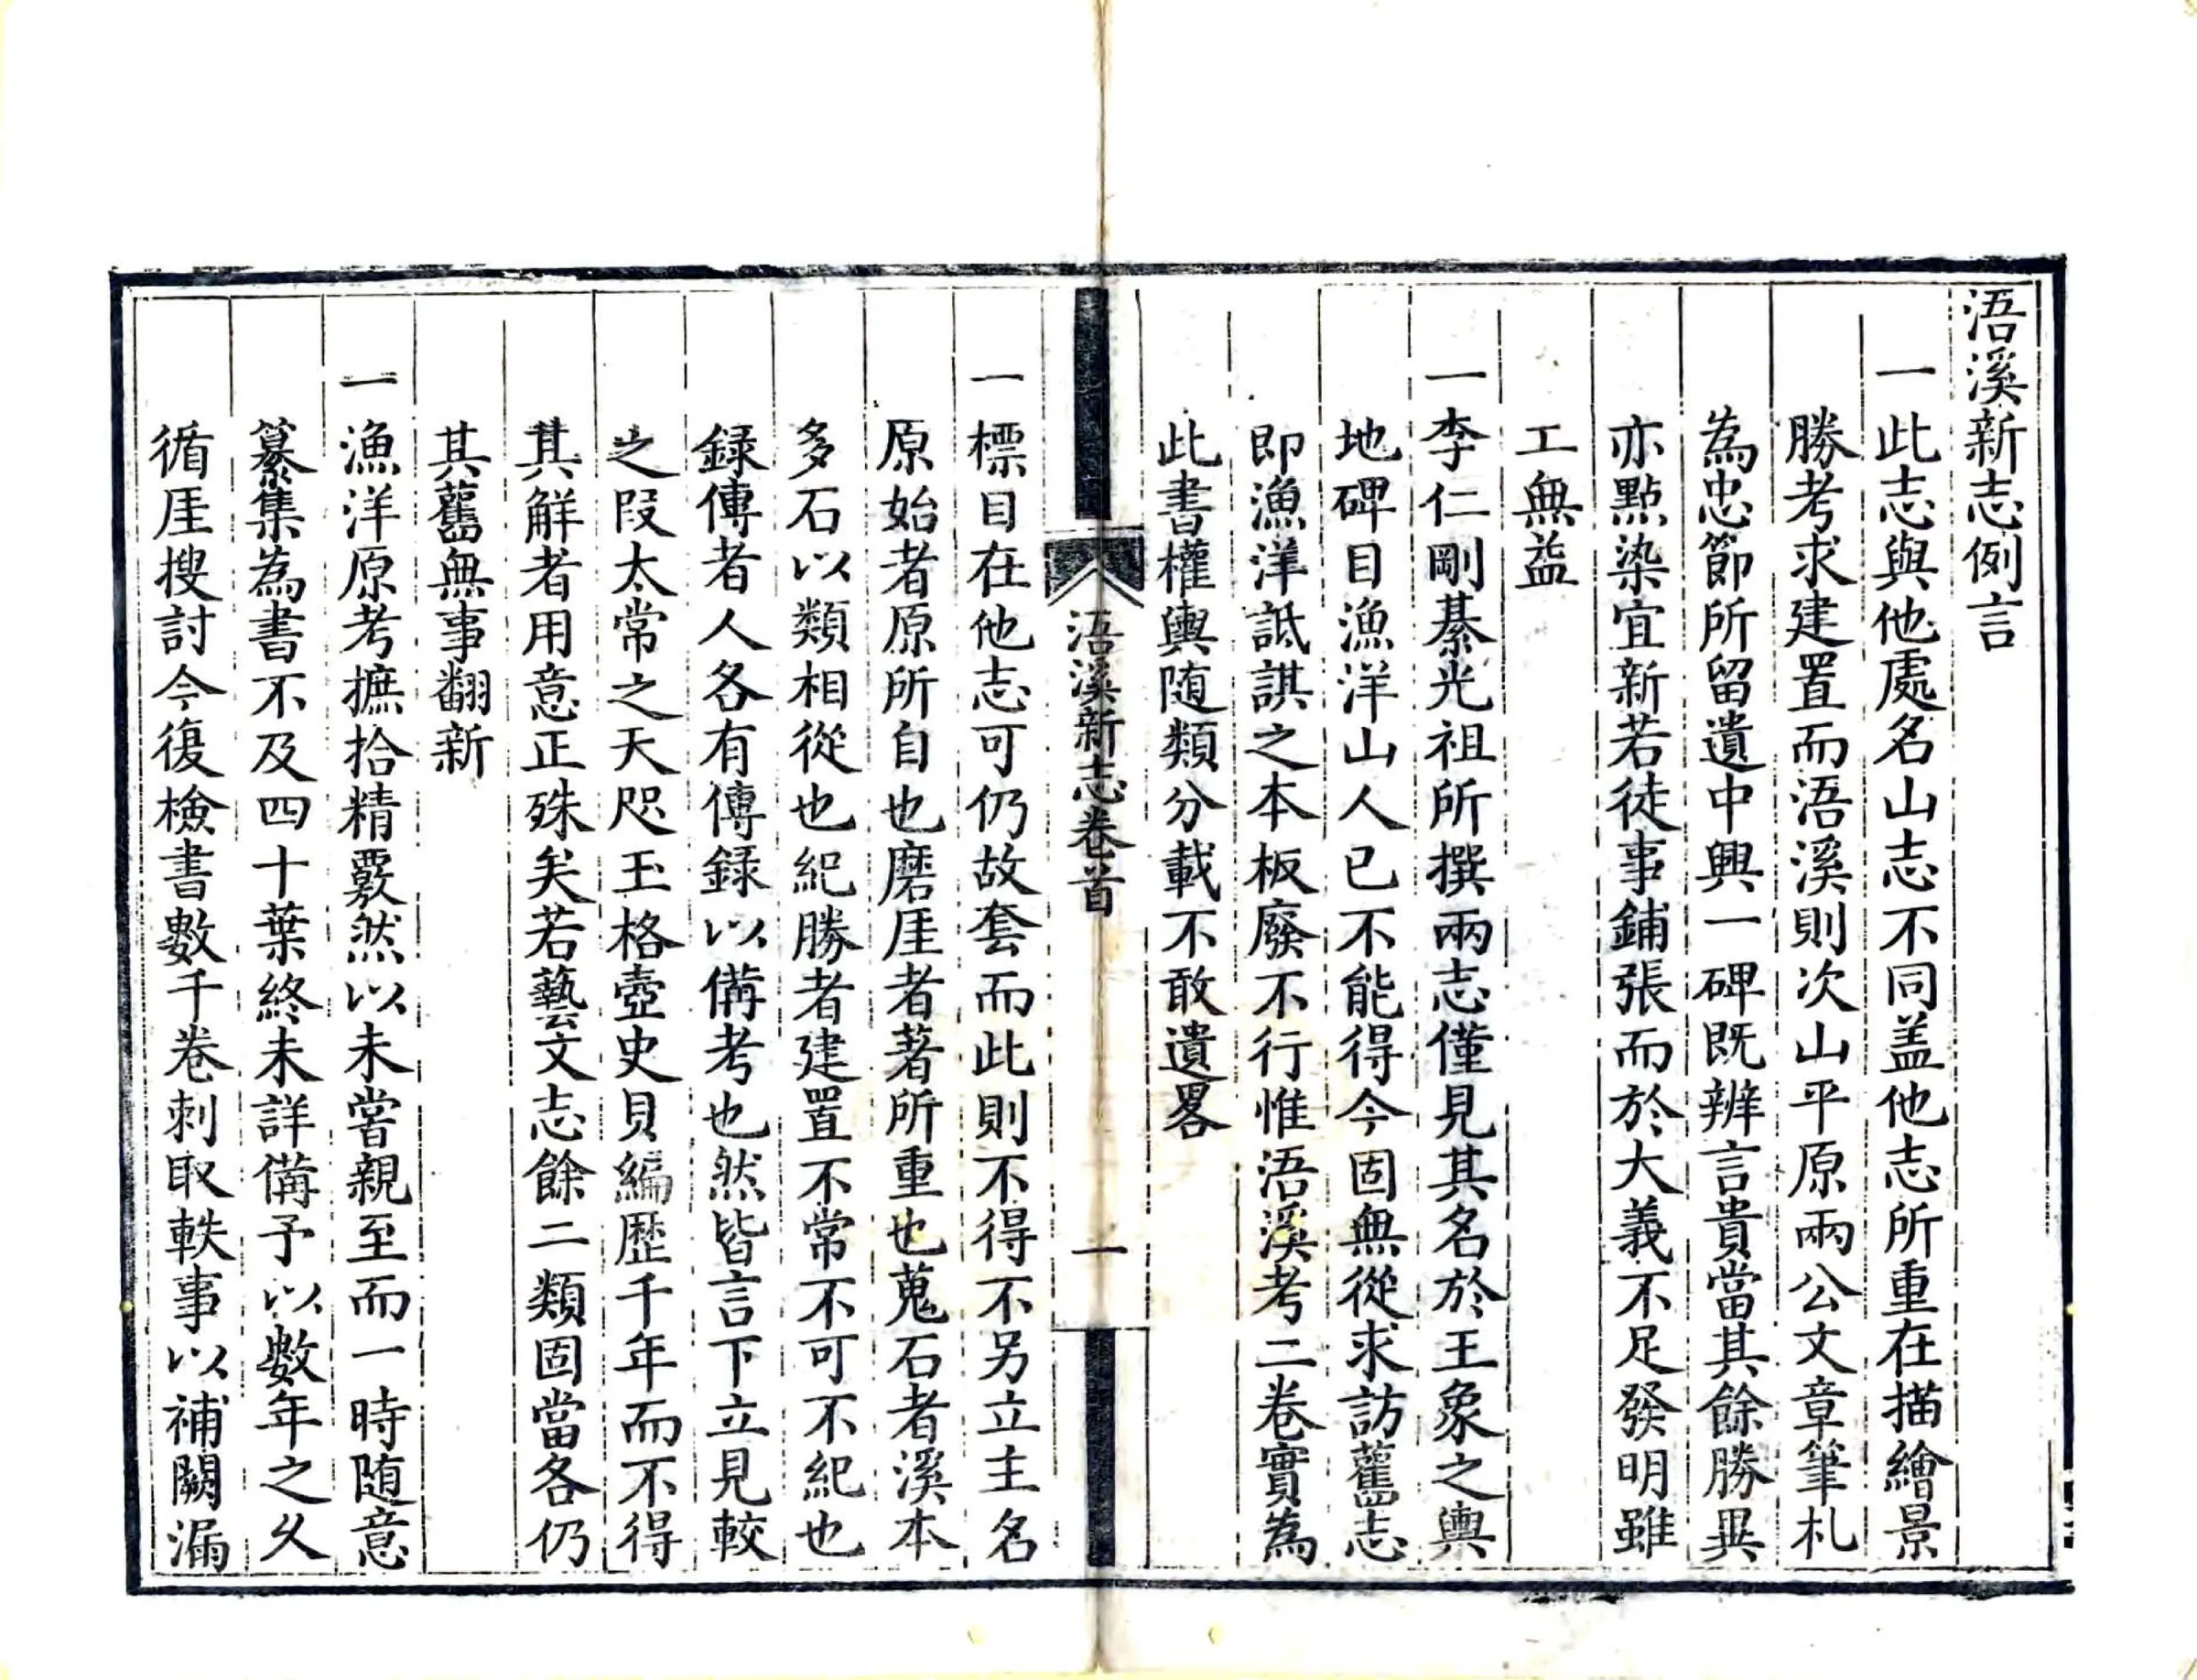 浯溪新志例言
一此志與他處名山志不同盖他志所重在描繪景
勝考求建置而浯溪則次山平原兩公文章筆札
為忠節所留遺中興一碑既辨言貴當其餘勝異
亦點染宜新若徒事鋪張而於大義不足發明雖
工無益
一李仁剛綦光祖所撰兩志僅見其名於王象之輿
地碑目漁洋山人已不能得今固無從求訪舊志
即漁洋詆諆之本板廢不行惟浯溪考二卷實為
此書權輿随類分載不敢遺畧
浯溪新志卷首
一
一標目在他志可仍故套而此則不得不另立主名
原始者原所自也磨厓者著所重也蒐石者溪本
多石以類相從也紀勝者建置不常不可不紀也
録傳者人各有傳録以備考也然皆言下立見較
之段太常之天咫玉格壺史貝編歷千年而不得
其解者用意正殊矣若藝文志餘二類固當各仍
其舊無事翻新
一漁洋原考摭拾精覈然以未嘗親至而一時随意
纂集為書不及四十葉終未詳備予以數年之久
循厓搜討今復檢書數千卷刺取軼事以補闕漏